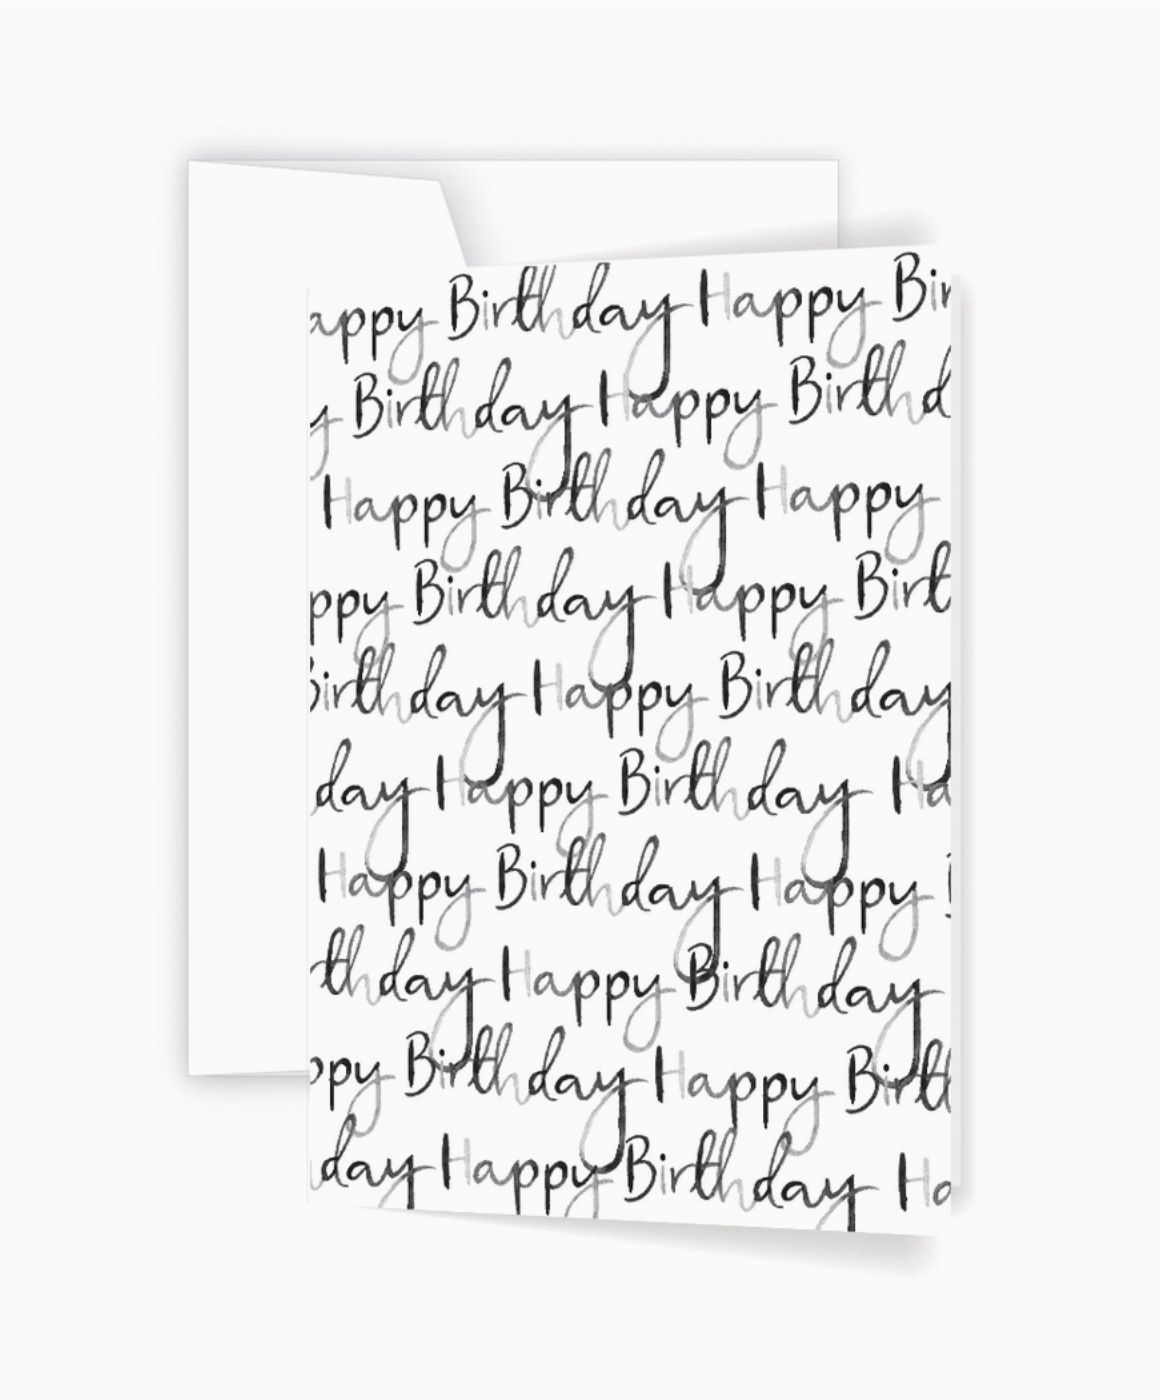 appy Birthday Happy Bir
y Birthday Happy Birthd
Happy Birthday Happy
ppy Birthday Happy Birt
Birthday Happy Birthday
day Happy Birthday Ha
Happy Birthday Happy B
rthday Happy Birthday
ppy Birthday Happy Birth
day Happy Birthday Ha